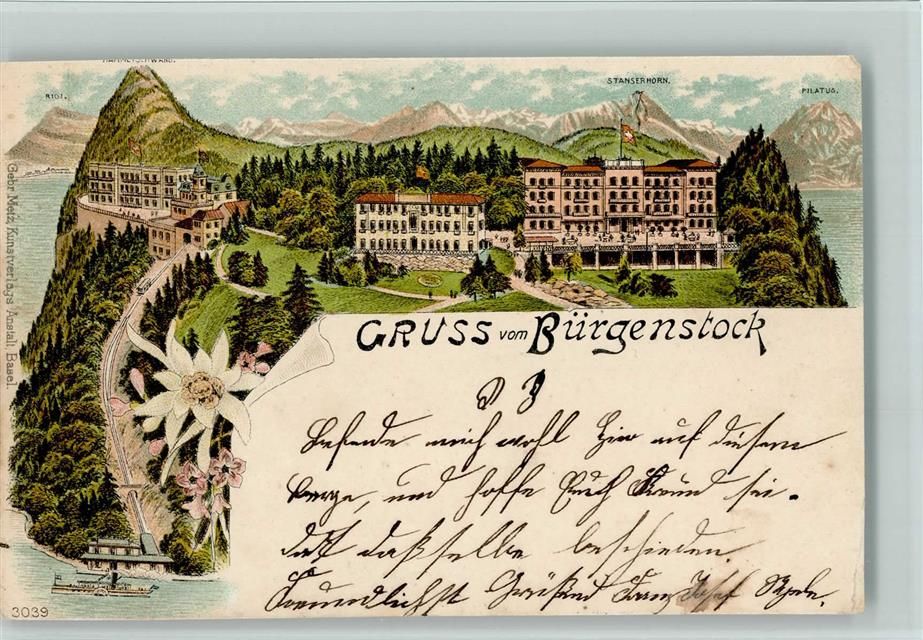 HAMMETSCHWAND.
RIGI.
STANSERHORN.
PILATUS.
Gebr. Metz, Kunstverlags-Anstalt, Basel.
GRUSS vom Bürgenstock
Befinde mich wohl hier auf diesem
Berge, und hoffe Euch Freund sei
das dasselbe beschieden
Freundlichst Grüßend Franz Josef
3039